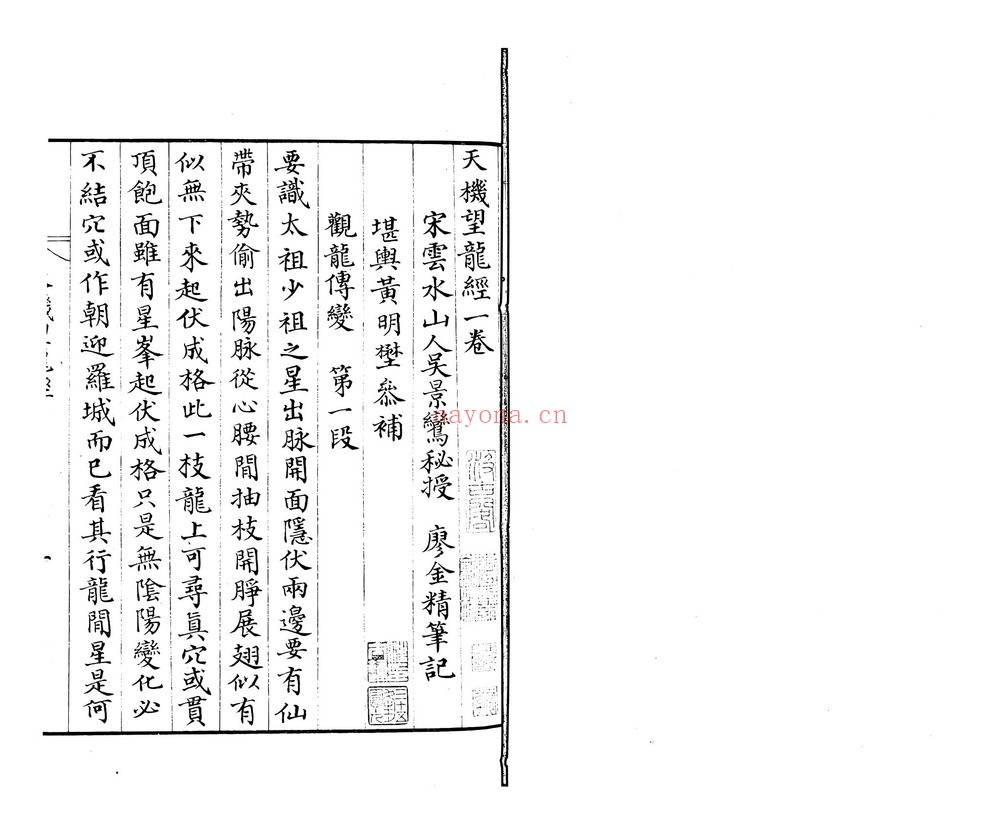 天機望龍經一卷
宋雲水山人吳景鸞秘授　廖金精筆記
堪輿黃明壄叅補
觀龍傳變　第一段
要識太祖少祖之星出脉開面隱伏兩邊要有仙
帶夾勢偷出陽脉從心腰間抽枝開腁展翅似有
似無下來起伏成格此一枝龍上可尋真穴或貫
頂飽面雖有星峯起伏成格只是無陰陽變化必
不結穴或作朝迎羅城而已看其行龍間星是何
nayona.cn